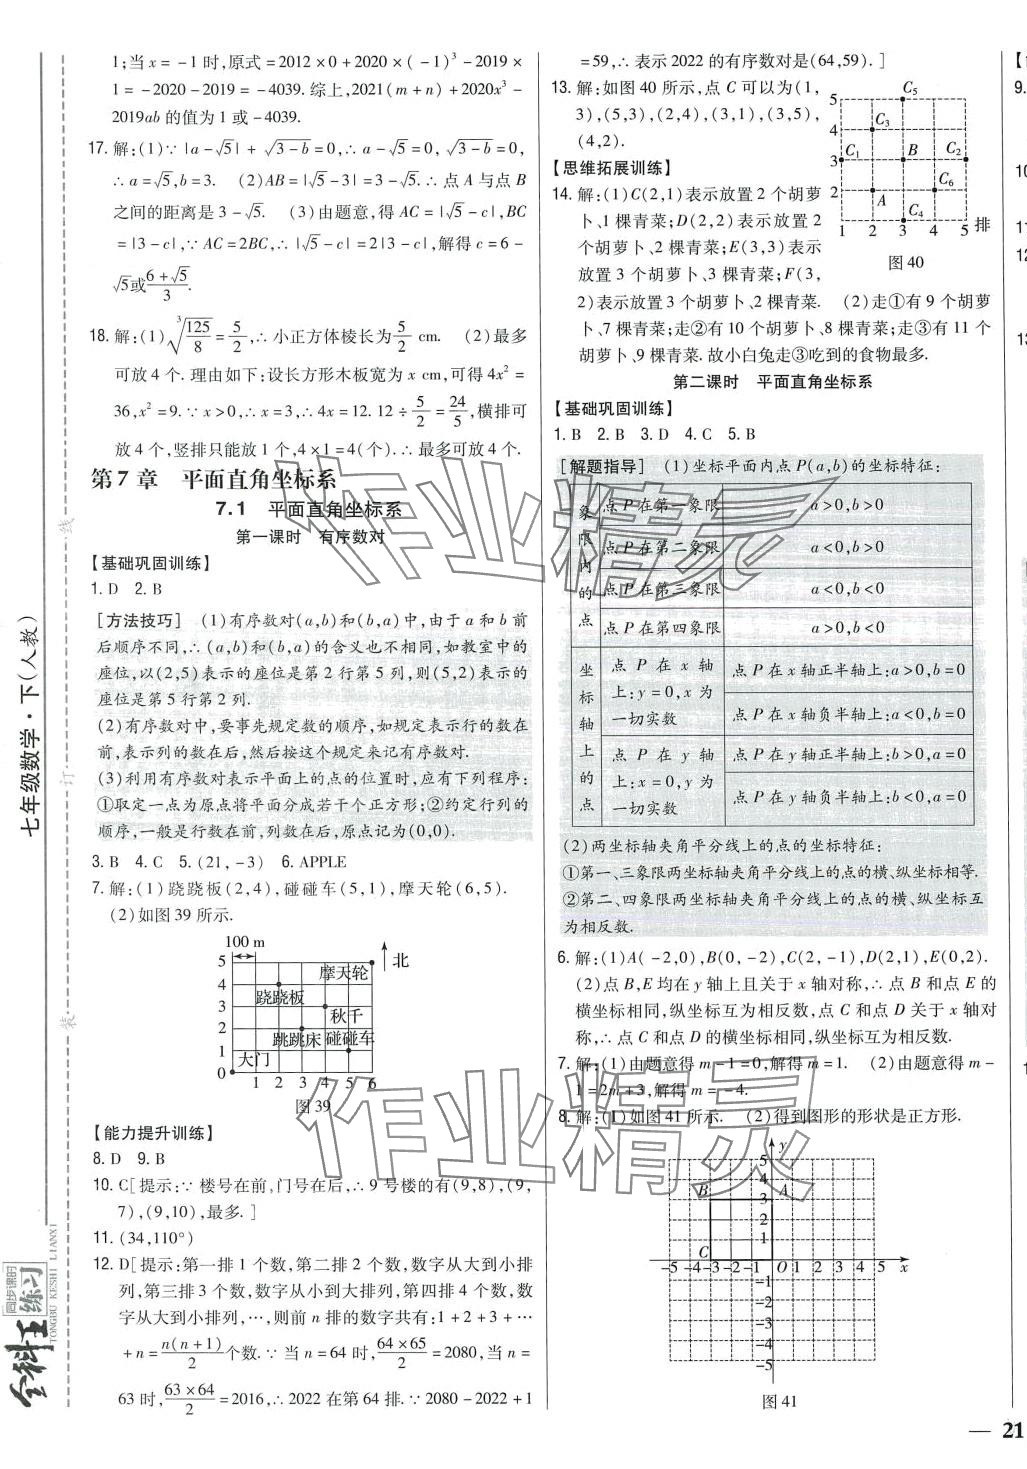 1;当x=-1时,原式=2012×0+2020×(-1)³-2019×
1=-2020-2019=-4039.综上,2021(m+n)+2020x³-
2019ab的值为1或-4039.
17.解:(1)∵|a-√5|+√(3-b)=0,∴a-√5=0,√(3-b)=0,
∴a=√5,b=3. (2)AB=|√5-3|=3-√5.∴点A与点B
之间的距离是3-√5. (3)由题意,得AC=|√5-c|,BC
=|3-c|,∵AC=2BC,∴|√5-c|=2|3-c|,解得c=6-
√5或(6+√5)/3.
18.解:(1)³√(125/8)=5/2,∴小正方体棱长为5/2 cm. (2)最多
可放4个.理由如下:设长方形木板宽为x cm,可得4x²=
36,x²=9.∵x>0,∴x=3,∴4x=12.12÷5/2=24/5,横排可
放4个,竖排只能放1个,4×1=4(个).∴最多可放4个.
第7章 平面直角坐标系
7.1 平面直角坐标系
第一课时 有序数对
【基础巩固训练】
1.D 2.B
[方法技巧] (1)有序数对(a,b)和(b,a)中,由于a和b前
后顺序不同,∴(a,b)和(b,a)的含义也不相同,如教室中的
座位,以(2,5)表示的座位是第2行第5列,则(5,2)表示的
座位是第5行第2列.
(2)有序数对中,要事先规定数的顺序,如规定表示行的数在
前,表示列的数在后,然后按这个规定来记有序数对.
(3)利用有序数对表示平面上的点的位置时,应有下列程序:
①取定一点为原点将平面分成若干个正方形;②约定行列的
顺序,一般是行数在前,列数在后,原点记为(0,0).
3.B 4.C 5.(21,-3) 6.APPLE
7.解:(1)跷跷板(2,4),碰碰车(5,1),摩天轮(6,5).
(2)如图39所示.
100 m
北
5
4
3
2
1
0
摩天轮
跷跷板
秋千
跳跳床 碰碰车
大门
1 2 3 4 5 6
图39
【能力提升训练】
8.D 9.B
10.C[提示:∵楼号在前,门号在后,∴9号楼的有(9,8),(9,
7),(9,10),最多.]
11.(34,110°)
12.D[提示:第一排1个数,第二排2个数,数字从大到小排
列,第三排3个数,数字从小到大排列,第四排4个数,数
字从大到小排列,…,则前n排的数字共有:1+2+3+…
+n=n(n+1)/2个数.∵当n=64时,(64×65)/2=2080,当n=
63时,(63×64)/2=2016,∴2022在第64排.∵2080-2022+1
=59,∴表示2022的有序数对是(64,59).]
13.解:如图40所示,点C可以为(1,
3),(5,3),(2,4),(3,1),(3,5),
(4,2).
【思维拓展训练】
14.解:(1)C(2,1)表示放置2个胡萝
卜、1棵青菜;D(2,2)表示放置2
个胡萝卜、2棵青菜;E(3,3)表示
放置3个胡萝卜、3棵青菜;F(3,
2)表示放置3个胡萝卜、2棵青菜. (2)走①有9个胡萝
卜、7棵青菜;走②有10个胡萝卜、8棵青菜;走③有11个
胡萝卜、9棵青菜.故小白兔走③吃到的食物最多.
5
4
3
2
1 2 3 4 5 排
C₅
C₃
C₁ B C₂
A C₆
C₄
图40
第二课时 平面直角坐标系
【基础巩固训练】
1.B 2.B 3.D 4.C 5.B
[解题指导] (1)坐标平面内点P(a,b)的坐标特征:
象限内的点
点P在第一象限 a>0,b>0
点P在第二象限 a<0,b>0
点P在第三象限 a<0,b<0
点P在第四象限 a>0,b<0
坐标轴上的点
点P在x轴上:y=0,x为一切实数
点P在x轴正半轴上:a>0,b=0
点P在x轴负半轴上:a<0,b=0
点P在y轴上:x=0,y为一切实数
点P在y轴正半轴上:b>0,a=0
点P在y轴负半轴上:b<0,a=0
(2)两坐标轴夹角平分线上的点的坐标特征:
①第一、三象限两坐标轴夹角平分线上的点的横、纵坐标相等.
②第二、四象限两坐标轴夹角平分线上的点的横、纵坐标互
为相反数.
6.解:(1)A(-2,0),B(0,-2),C(2,-1),D(2,1),E(0,2).
(2)点B,E均在y轴上且关于x轴对称,∴点B和点E的
横坐标相同,纵坐标互为相反数,点C和点D关于x轴对
称,∴点C和点D的横坐标相同,纵坐标互为相反数.
7.解:(1)由题意得m-1=0,解得m=1. (2)由题意得m-
1=2m+3,解得m=-4.
8.解:(1)如图41所示. (2)得到图形的形状是正方形.
y
5
4
B 3 A
2
1
C O
-5 -4 -3 -2 -1 1 2 3 4 5 x
-1
-2
-3
-4
-5
图41
七年级数学·下(人教)
装 订 线
全科王
同步课时
练习
TONGBU KESHI LIANXI
作业精灵
作业精灵
— 21
9.
10
11
12
13
1